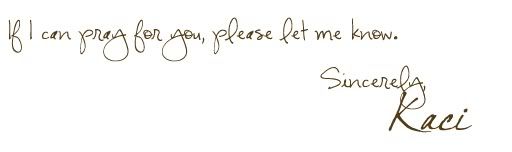 If I can pray for you, please let me know.
Sincerely,
Kaci